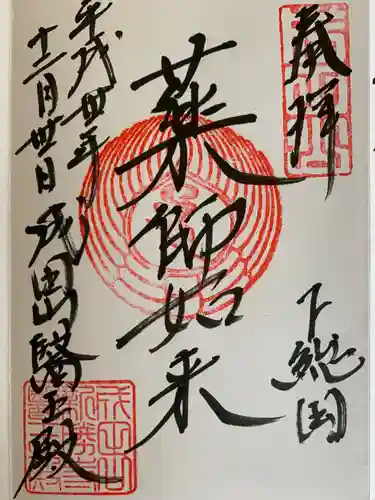 奉拝
下総国
薬師如来
平成卅年
十二月卅日 成田山醫王殿